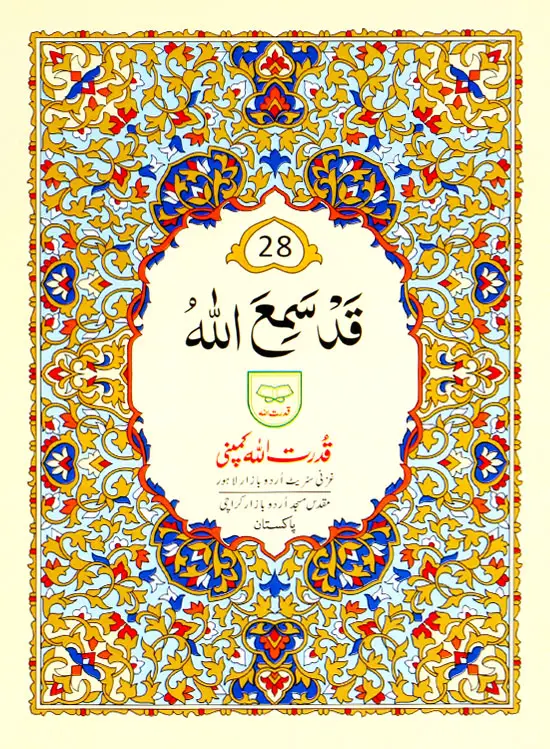 28
قَدْ سَمِعَ اللّٰهُ
قدرت اللہ
قُدرت اللہ کمپنی
غزنی سٹریٹ اُردو بازار لاہور
مقدس مسجد اُردو بازار کراچی
پاکستان